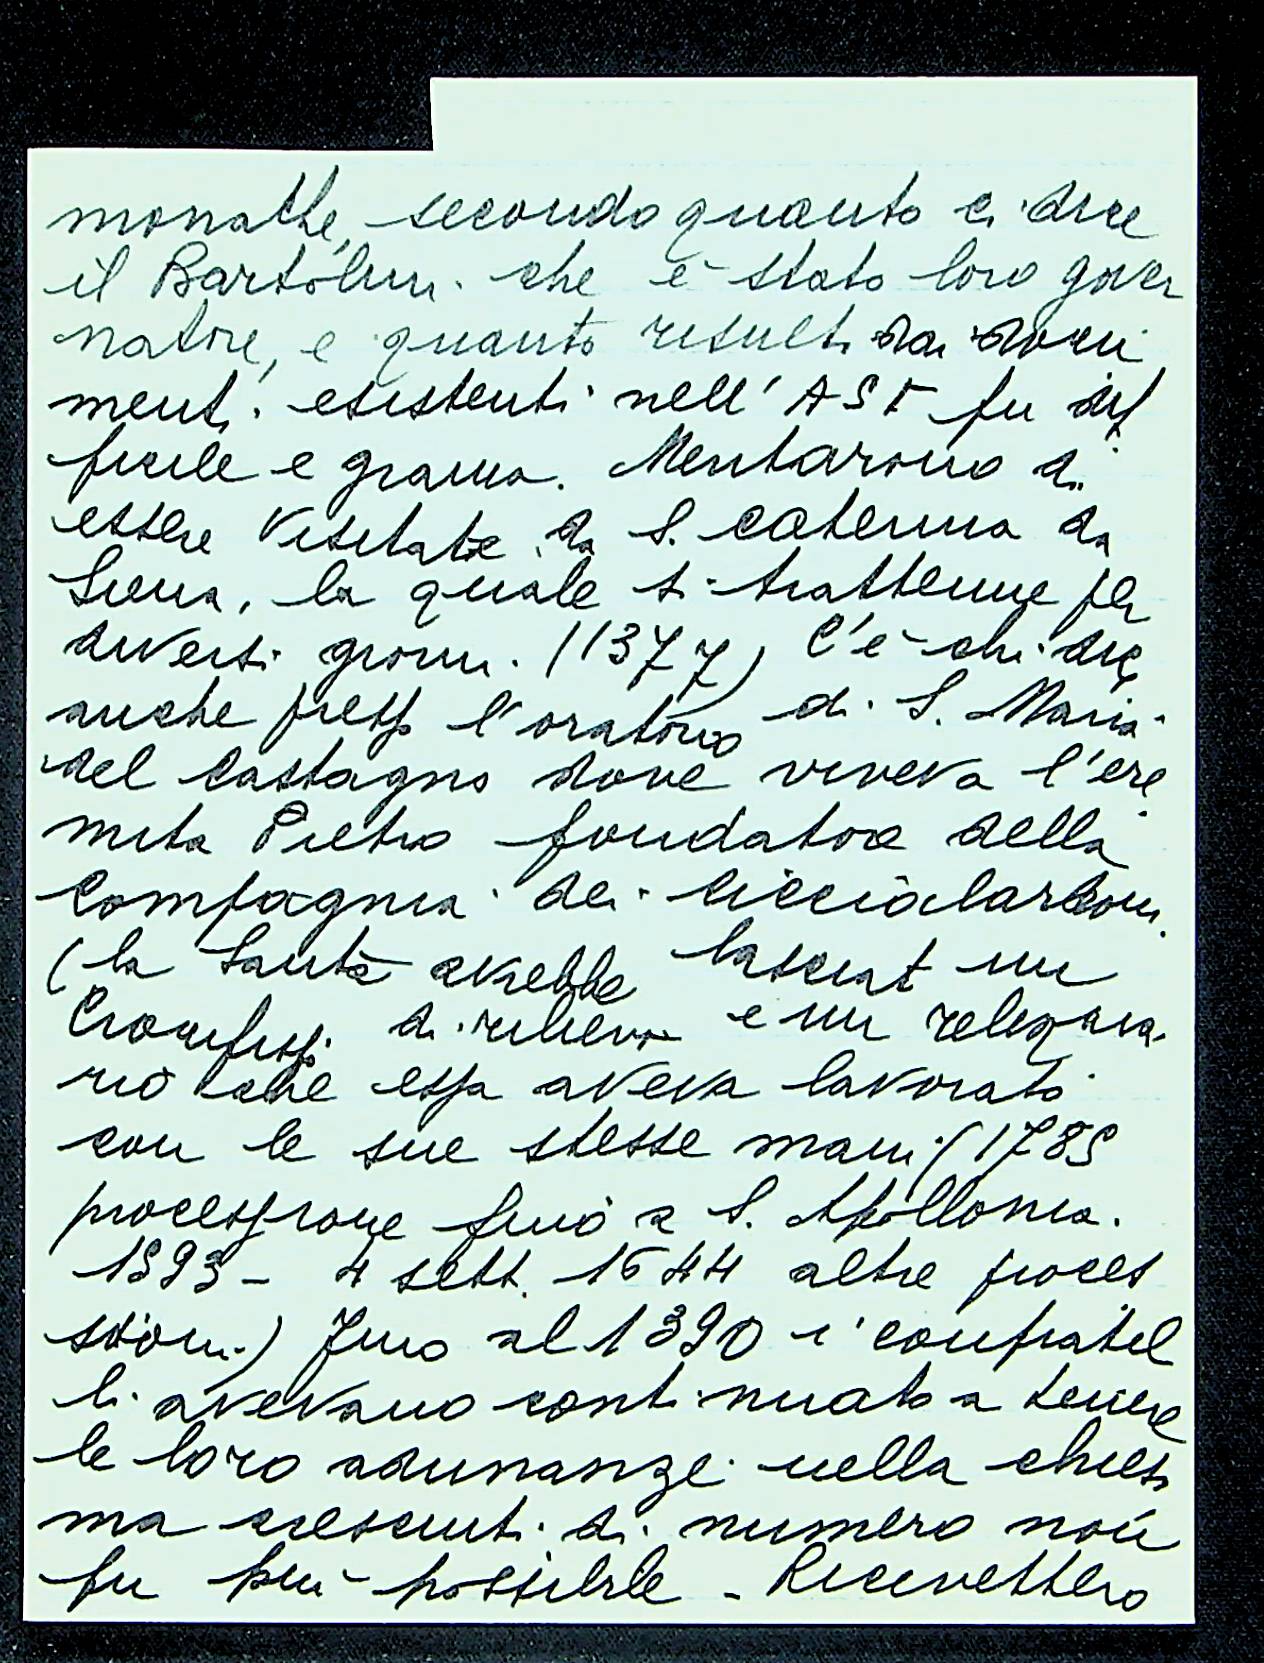 monache, secondo quanto ci dice
il Bartolini che è stato loro gover
natore, e quanto risulti dai docu
menti esistenti nell'ASF fu dif
ficile e grama. Meritarono di
essere visitate da S. Caterina da
Siena, la quale si trattenne per
diversi giorni. (1377) C'è chi dice
anche presso l'oratorio di S. Maria
del Castagno dove viveva l'ere
mita Pietro fondatore della
Compagnia dei
(la Santa avrebbe lasciat un
Crocifisso di rilievo e un reliquia
rio che essa aveva lavorato
con le sue stesse mani (1785
processione finò a S. Apollonia.
1893 - 4 sett. 1644 altre proces
sioni.) Fino al 1390 i confratel
li avevano continuato a tenere
le loro adunanze nella chiesa
ma cresciuti di numero non
fu più possibile - Ricevettero